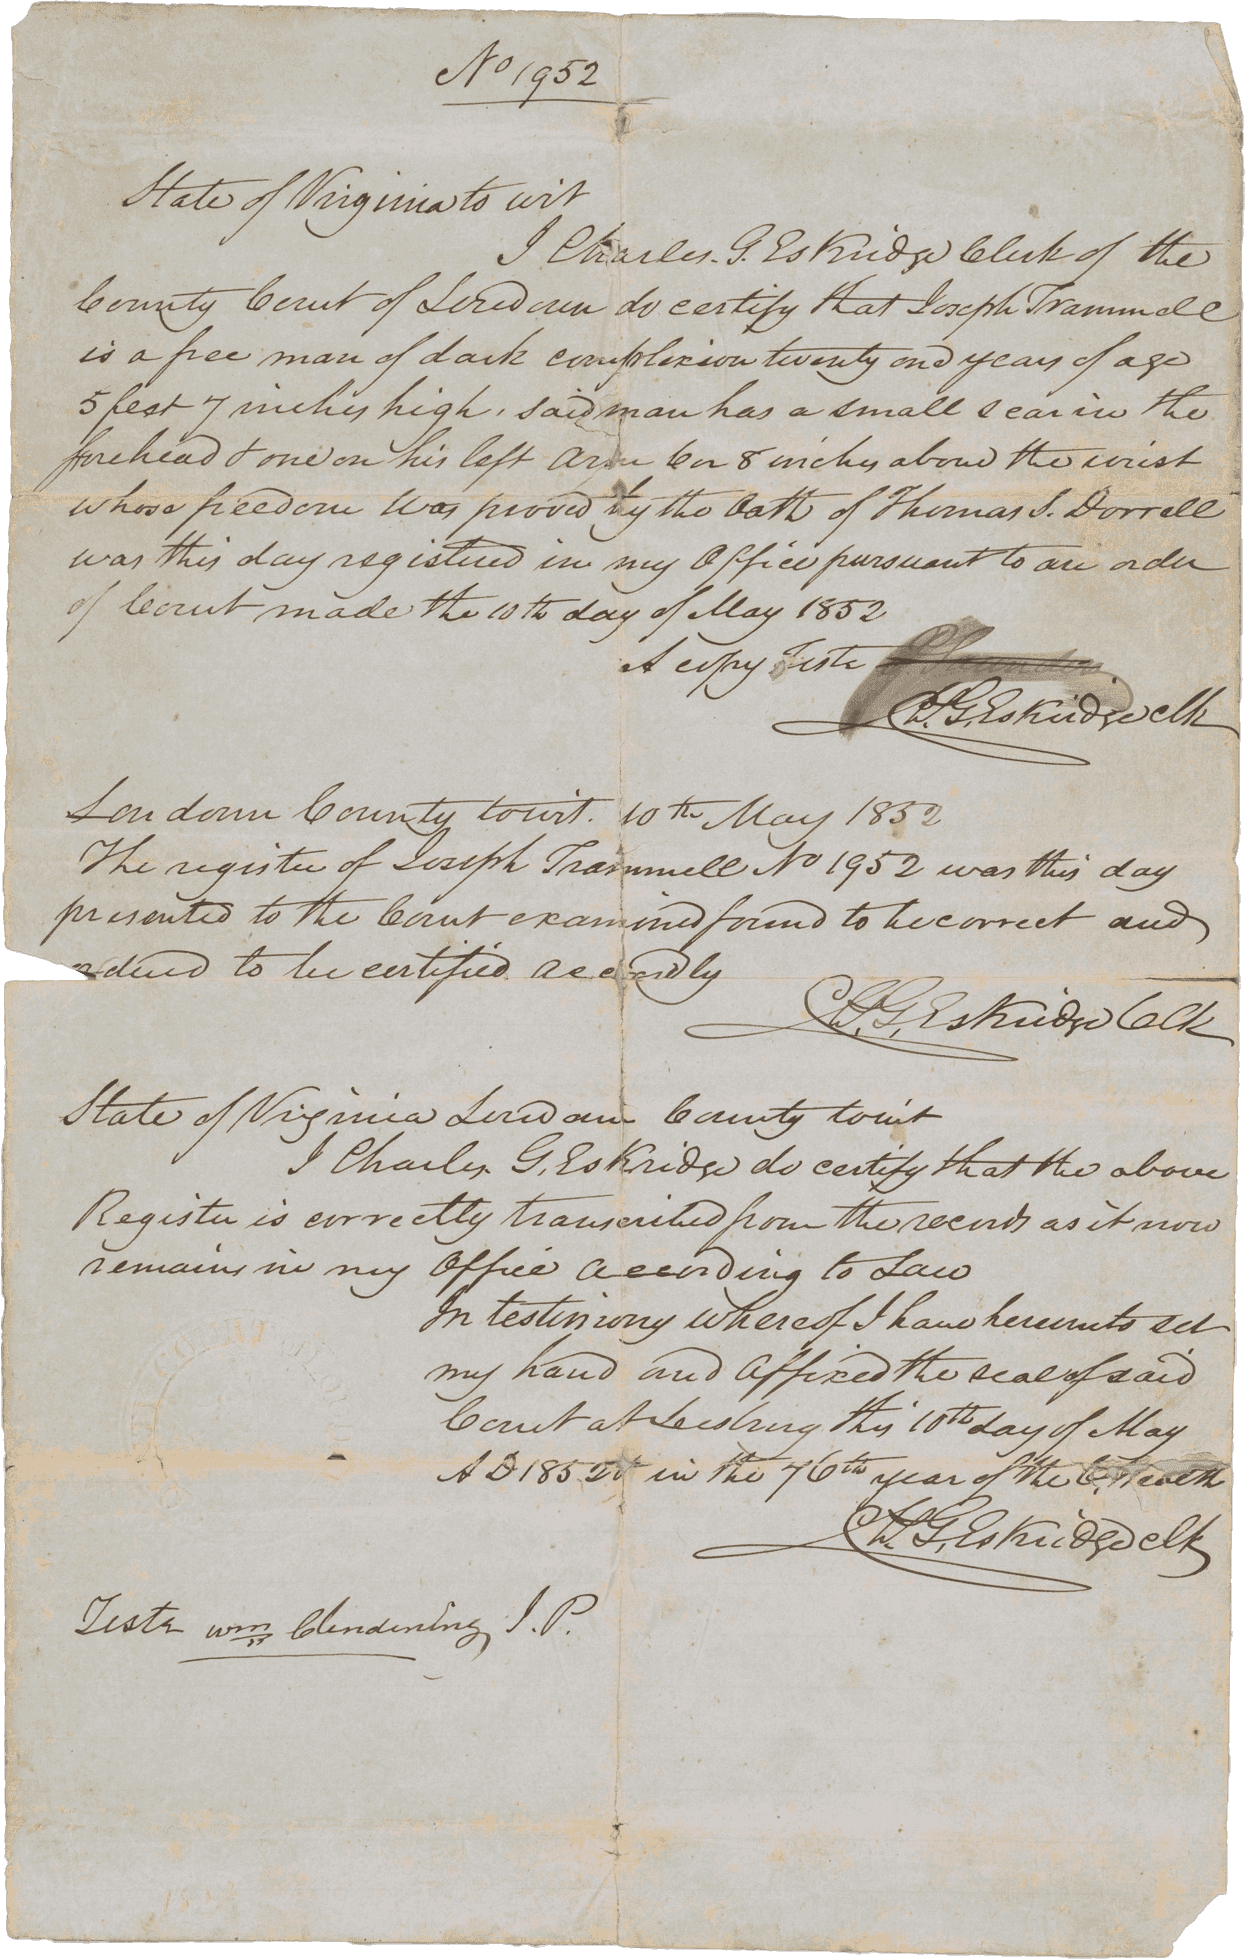 No 1952
State of Virginia to wit
I Charles. G. Eskridge Clerk of the
County Court of Loudoun do certify that Joseph Trammell
is a free man of dark complexion twenty one years of age
5 feet 7 inches high, said man has a small scar in the
forehead & one on his left arm 6 or 8 inches above the wrist
whose freedom was proved by the Oath of Thomas S. Dorrell
was this day registered in my Office pursuant to an order
of Court made the 10th day of May 1852
A copy Teste
Ch. G. Eskridge clk
Loudoun County towit. 10th May 1852
The register of Joseph Trammell No 1952 was this day
presented to the Court examined found to be correct and
ordered to be certified accordly
Ch. G. Eskridge Clk
State of Virginia Loudoun County towit
I Charles G. Eskridge do certify that the above
Register is correctly transcribed from the records as it now
remains in my Office according to Law
In testimony whereof I have hereunto set
my hand and affixed the seal of said
Court at Leesburg this 10th day of May
AD 1852 in the 76th year of the
Ch. G. Eskridge clk
Teste Wm Clendening J.P.